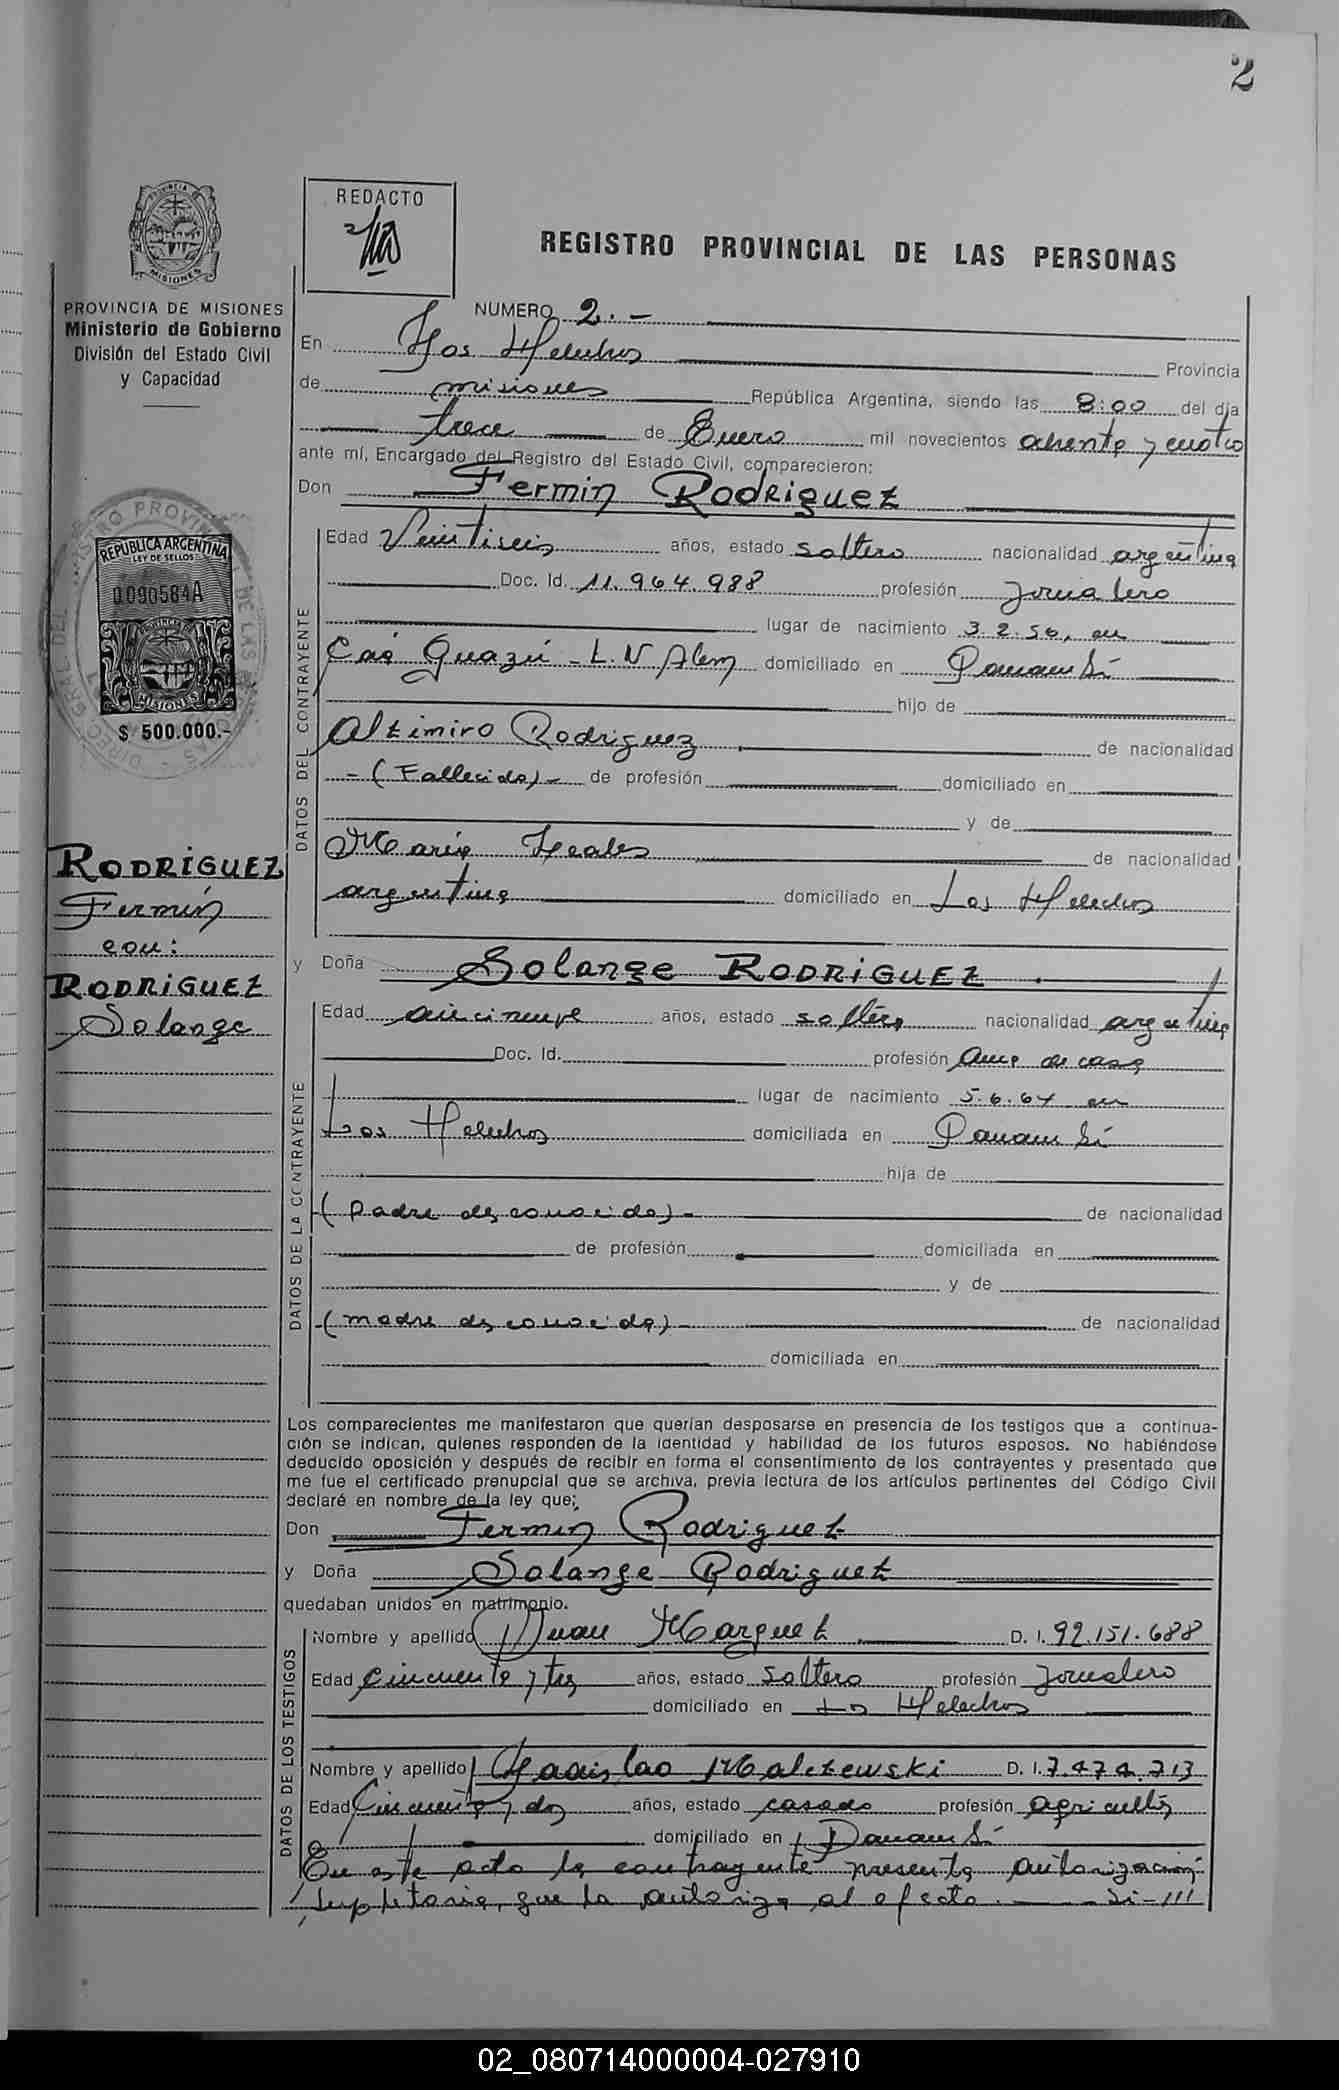 2
REDACTO
REGISTRO PROVINCIAL DE LAS PERSONAS
PROVINCIA DE MISIONES
Ministerio de Gobierno
División del Estado Civil
y Capacidad
REPUBLICA ARGENTINA
LEY DE SELLOS
0090584A
PROVINCIA DE
MISIONES
$ 500.000.-
RODRIGUEZ
Fermín
con:
RODRIGUEZ
Solange
NUMERO 2.-
En Los Helechos Provincia
de misiones República Argentina, siendo las 8:00 del día
trece de Enero mil novecientos ochenta y cuatro
ante mí, Encargado del Registro del Estado Civil, comparecieron:
Don Fermin Rodriguez
DATOS DEL CONTRAYENTE
Edad Veintiseis años, estado soltero nacionalidad argentina
Doc. Id. 11.964.988 profesión Jornalero
lugar de nacimiento 3.2.56, en
Caá Guazú - L.N Alem domiciliado en Panambí
hijo de
Altimiro Rodriguez de nacionalidad
-(Fallecido)- de profesión domiciliado en
y de
María Leales de nacionalidad
argentina domiciliado en Los Helechos
y Doña Solange RODRIGUEZ
DATOS DE LA CONTRAYENTE
Edad diecinueve años, estado soltera nacionalidad argentina
Doc. Id. profesión Ama de casa
lugar de nacimiento 5.6.64 en
Los Helechos domiciliada en Panambí
hija de
(padre desconocido)- de nacionalidad
de profesión domiciliada en
y de
-(madre desconocida)- de nacionalidad
domiciliada en
Los comparecientes me manifestaron que querían desposarse en presencia de los testigos que a continua-
ción se indican, quienes responden de la identidad y habilidad de los futuros esposos. No habiéndose
deducido oposición y después de recibir en forma el consentimiento de los contrayentes y presentado que
me fue el certificado prenupcial que se archiva, previa lectura de los artículos pertinentes del Código Civil
declaré en nombre de la ley que:
Don Fermin Rodriguez
y Doña Solange Rodriguez
quedaban unidos en matrimonio.
DATOS DE LOS TESTIGOS
Nombre y apellido Juan Marquez D. I. 92.151.688
Edad Cincuenta y tres años, estado soltero profesión Jornalero
domiciliado en Los Helechos
Nombre y apellido Ladislao Malczewski D. I. 7.474.713
Edad Cincuenta y dos años, estado casado profesión agricultor
domiciliado en Panambí
En este acto la contrayente presenta autorización
supletoria, que la autoriza al efecto.
02_080714000004-027910